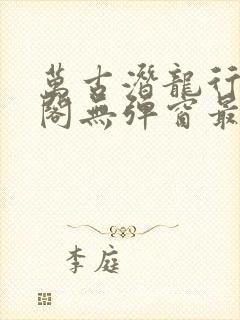 萬古潛龍行
閣無彈窗最
李庭